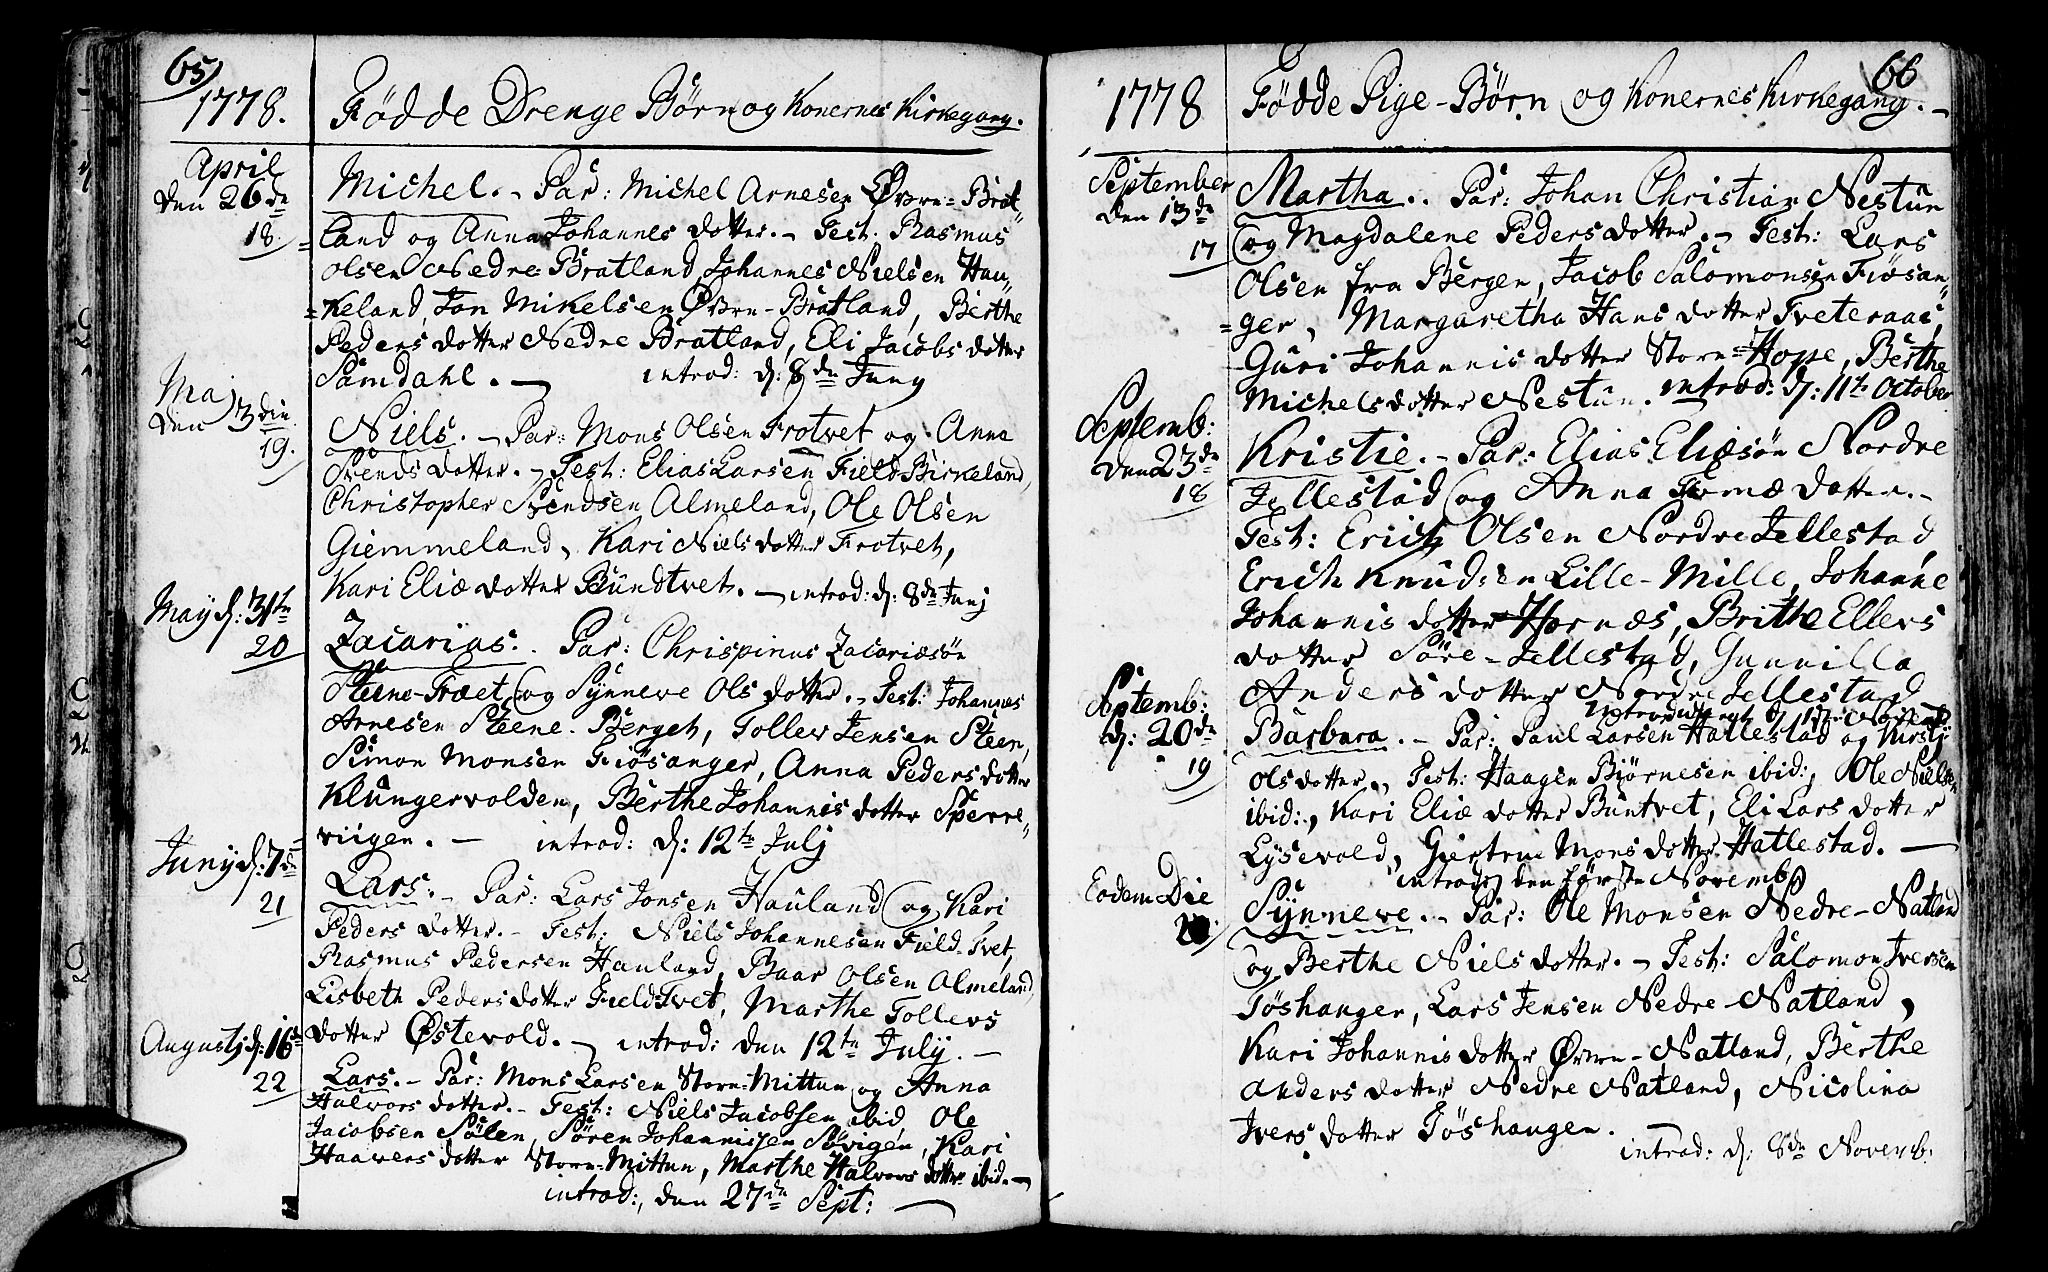 65
1778. Fødde Drenge Børn og Konernes Kirkegang.
April
den 26de
18.
Michel. - Par: Michel Arnesen Øvre= Brat„
=land og Anna Johannes dotter. - Test. Rasmus
Olsen Nedre= Bratland, Johannes Nielsen Hau„
=keland, Jon Mikelsen Øvre-Bratland, Berthe
Peders dotter Nedre Bratland, Eli Jacobs dotter
Samdahl. - introd: d: 8de Juny
Maj
den 3die
19.
Niels. - Par: Mons Olsen Frotvet og Anna
Svends dotter. - Test: Elias Larsen Field-Birkeland,
Christopher Svendsen Almeland, Ole Olsen
Giemmeland, Kari Niels dotter Frotvet,
Kari Eliæ dotter Bundtvet. - introd: d: 8de Junj
May d: 31te
20
Zacarias. . Par: Chrispinus Zacariæsøn
Steene-Træet og Synneve Ols dotter. - Test: Johannes
Arnesen Steene-Berget, Tollev Jensen Steen,
Simon Monsen Fiøsanger, Anna Peders dotter
Klungervolden, Berthe Johannis dotter Sperre„
viigen. - introd: d: 12te Julj
Juny d: 7de
21
Lars. - Par: Lars Jonsen Hauland og Kari
Peders dotter. - Test: Niels Johannesen Field-Tvet,
Rasmus Pedersen Hauland, Baar Olsen Almeland,
Lisbeth Peders dotter FieldTvet, Marthe Tollevs
dotter Østevold. - introd: den 12te July. -
Augustj d: 16de
22
Lars. - Par: Mons Larsen Store-Mittun og Anna
Halvors dotter. - Test: Niels Jacobsen ibid, Ole
Jacobsen Sølen, Søren Johannissen Sørvigen, Kari
Haavers dotter Store-Mittun, Marthe Halvors dotter ibid. -
introd:, den 27de Sept: -
66
1778 Fødde Pige-Børn og Konernes Kirkegang. -
September
den 13de
17
Martha. . Par: Johan Christian Nestun
og Magdalene Peders dotter. - Test: Lars
Olsen fra Bergen, Jacob Salomonsen Fiøsan„
=ger, Margaretha Hans dotter Tveteraas,
Guri Johannis dotter Store=Hope, Berthe
Michels dotter Nestun. introd: d: 11te October
Septemb:
den 23de
18
Kristie. - Par: Elias Eliæsøn Nordre
Jellestad og Anna dotter. -
Test: Erich Olsen Nordre Jellestad
Erich Knudsen Lille-Mille, Johanne
Johannis dotter Hornæs, Brithe Ellers
dotter Søre-Jellestad, Gunnilla
Anders dotter Nordre Jellestad
Septemb:
d: 20de
19
Barbara. - Par: Paul Larsen Hatlestad og Kirstj
Ols dotter. Test: Haagen Biørnesen ibid:, Ole Nielsen
ibid:, Kari Eliæ dotter Buntvet, Eli Lars dotter
Lysevold, Giertrue Mons dotter Hatlestad. -
introd: den første Novemb:
Eodem Die
20.
Synneve. - Par: Ole Monsen Nedre-Natland
og Berthe Niels dotter. - Test: Salomon Iversen
Tøshanger, Lars Jensen Nedre-Natland,
Kari Johannis dotter Øvre-Natland, Berthe
Anders dotter Nedre Natland, Nicolina
Ivers dotter Tøshangen.
introd: d: 8de Novemb: